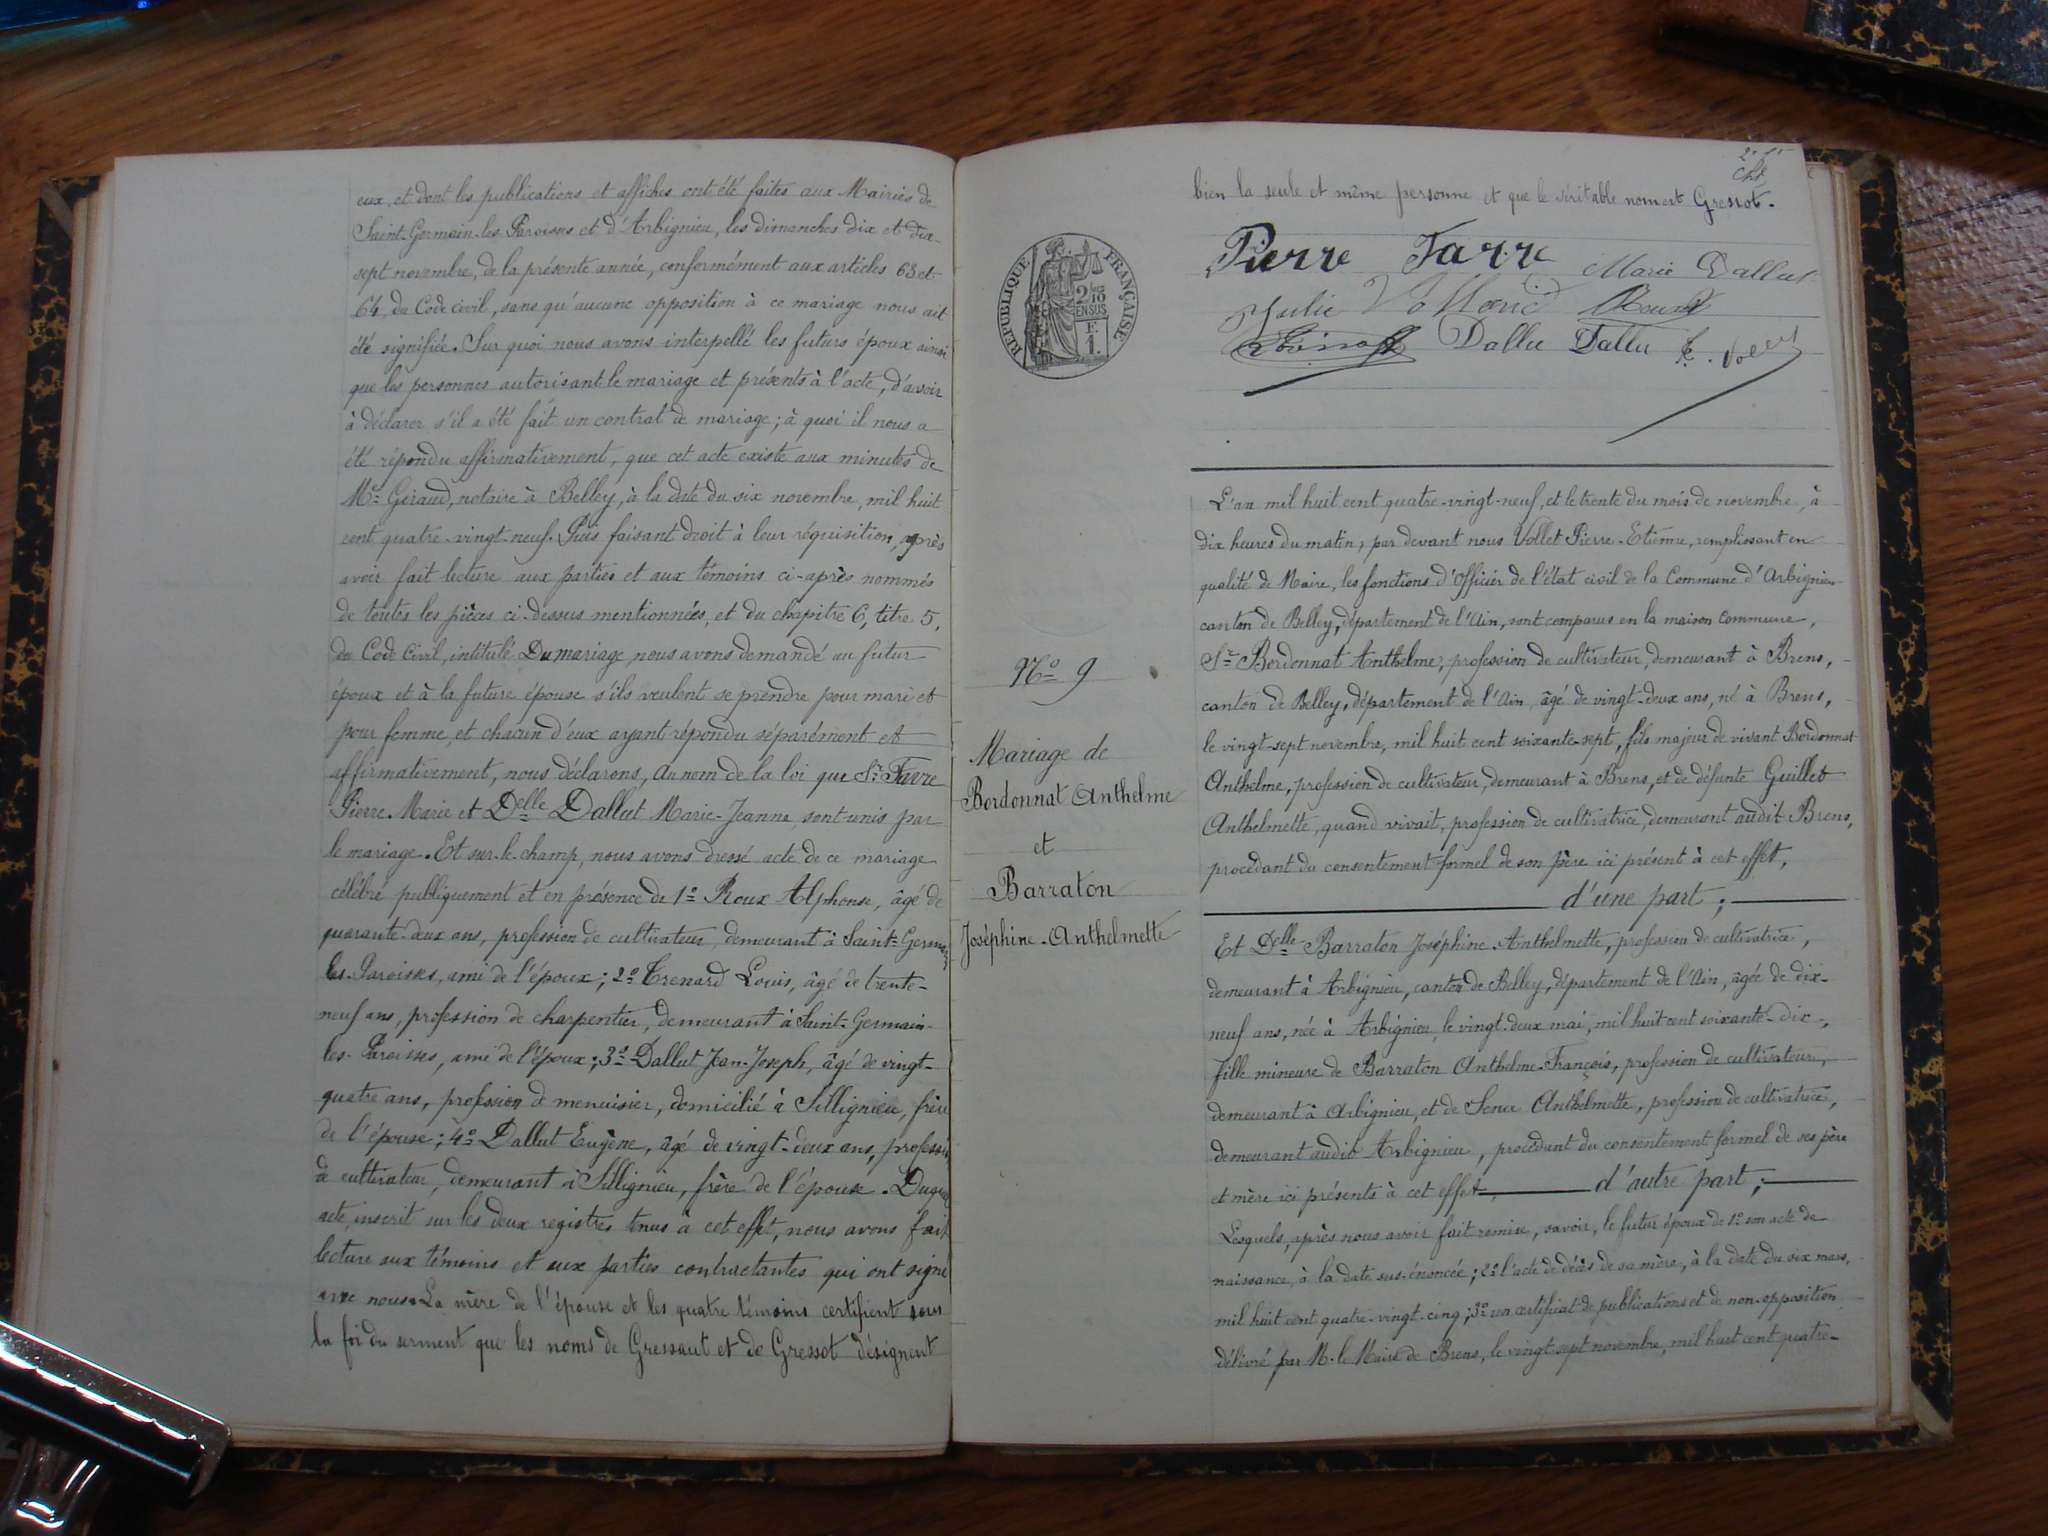 eux, et dont les publications et affiches ont été faites aux Mairies de
Saint-Germain-les-Paroisses et d'Arbignieu, les dimanches dix et dix-
sept novembre, de la présente année, conformément aux articles 63 et
64, du Code civil, sans qu'aucune opposition à ce mariage nous ait
été signifiée. Sur quoi nous avons interpellé les futurs époux ainsi
que les personnes autorisant le mariage et présents à l'acte, d'avoir
à déclarer s'il a été fait un contrat de mariage; à quoi il nous a
été répondu affirmativement, que cet acte existe aux minutes de
Me Giraud, notaire à Belley, à la date du six novembre, mil huit
cent quatre-vingt-neuf. Puis faisant droit à leur réquisition, après
avoir fait lecture aux parties et aux témoins ci-après nommés
de toutes les pièces ci-dessus mentionnées, et du chapitre 6, titre 5,
du Code Civil, intitulé Du mariage, nous avons demandé au futur
époux et à la future épouse s'ils veulent se prendre pour mari et
pour femme, et chacun d'eux ayant répondu séparément et
affirmativement, nous déclarons, au nom de la loi que Sr Favre
Pierre-Marie et Delle Dallut Marie-Jeanne, sont unis par
le mariage. Et sur-le-champ, nous avons dressé acte de ce mariage
célébré publiquement et en présence de 1o Roux Alphonse, âgé de
quarante-deux ans, profession de cultivateur, demeurant à Saint-Germain
les-Paroisses, ami de l'époux; 2o Trenard Louis, âgé de trente-
neuf ans, profession de charpentier, demeurant à Saint-Germain-
les-Paroisses, ami de l'époux; 3o Dallut Jean-Joseph, âgé de vingt-
quatre ans, profession de menuisier, domicilié à Sillignieu, frère
de l'épouse; 4o Dallut Eugène, âgé de vingt-deux ans, profession
de cultivateur, demeurant à Sillignieu, frère de l'épouse. Duquel
acte, inscrit sur les deux registres tenus à cet effet, nous avons fait
lecture aux témoins et aux parties contractantes qui ont signé
avec nous. La mère de l'épouse et les quatre témoins certifient sous
la foi du serment que les noms de Gressaut et de Gressot désignent
bien la seule et même personne et que le véritable nom est Gressot.
RÉPUBLIQUE FRANÇAISE
2/10
EN SUS
F.
1.
Pierre Favre Marie Dallut
Julie
Dallu Dallu
No 9
Mariage de
Bordonnat Anthelme
et
Barraton
Joséphine-Anthelmette
L'an mil huit cent quatre-vingt-neuf, et le trente du mois de novembre, à
dix heures du matin, par devant nous Vollet Pierre-Etienne, remplissant en
qualité de Maire, les fonctions d'Officier de l'état civil de la Commune d'Arbignieu
canton de Belley, département de l'Ain, sont comparus en la maison commune,
Sr Bordonnat Anthelme, profession de cultivateur, demeurant à Brens,
canton de Belley, département de l'Ain, âgé de vingt-deux ans, né à Brens,
le vingt-sept novembre, mil huit cent soixante-sept, fils majeur de vivant Bordonnat
Anthelme, profession de cultivateur, demeurant à Brens, et de défunte Guillet
Anthelmette, quand vivait, profession de cultivatrice, demeurant audit Brens,
procédant du consentement formel de son père ici présent à cet effet,
d'une part;
Et Delle Barraton Joséphine-Anthelmette, profession de cultivatrice,
demeurant à Arbignieu, canton de Belley, département de l'Ain, âgée de dix-
neuf ans, née à Arbignieu, le vingt-deux mai, mil huit cent soixante-dix,
fille mineure de Barraton Anthelme-François, profession de cultivateur,
demeurant à Arbignieu, et de Anthelmette, profession de cultivatrice,
demeurant audit Arbignieu, procédant du consentement formel de ses père
et mère ici présents à cet effet, d'autre part;
Lesquels, après nous avoir fait remise, savoir, le futur époux de 1o son acte de
naissance, à la date sus-énoncée; 2o l'acte de décès de sa mère, à la date du six mars,
mil huit cent quatre-vingt-cinq; 3o un certificat de publications et de non-opposition
délivré par M. le Maire de Brens, le vingt-sept novembre, mil huit cent quatre-